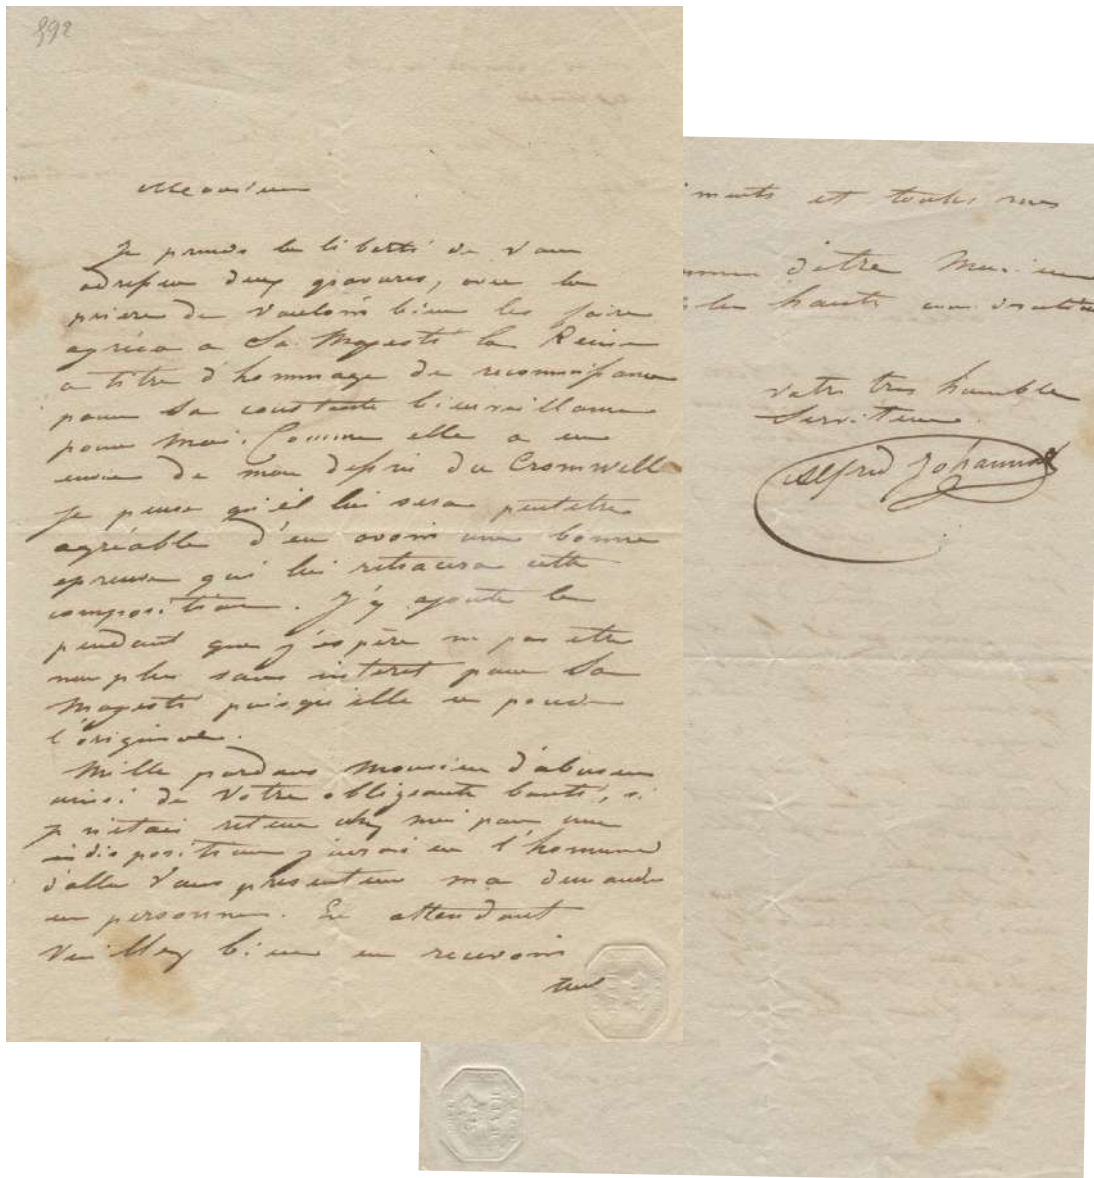 892
Monsieur
Je prends la liberté de vous
adresser deux gravures, avec la
priere de vouloir bien les faire
agréer a Sa Majesté la Reine
a titre d'hommage de reconnoissance
pour Sa constante bienveillance
pour moi. Comme elle a eu
envie de mon dessin du Cromwell
je pense qu'il lui sera peutetre
agréable d'en avoir une bonne
epreuve qui lui retracera cette
composition. J'y ajoute le
pendant que j'espère ne pas etre
non plus sans interet pour Sa
Majesté puisqu'elle en possede
l'original.
Mille pardons Monsieur d'abuser
ainsi de Votre obligeante bonté, si
je n'etais retenu chez moi par une
indisposition j'aurais eu l'honneur
d'aller Vous presenter ma demande
en personne. En attendant
Veuillez bien en recevoir
tous
ments et toutes mes
d'etre Monsieur
la haute consideration
votre tres humble
Serviteur.
Alfred Johannot